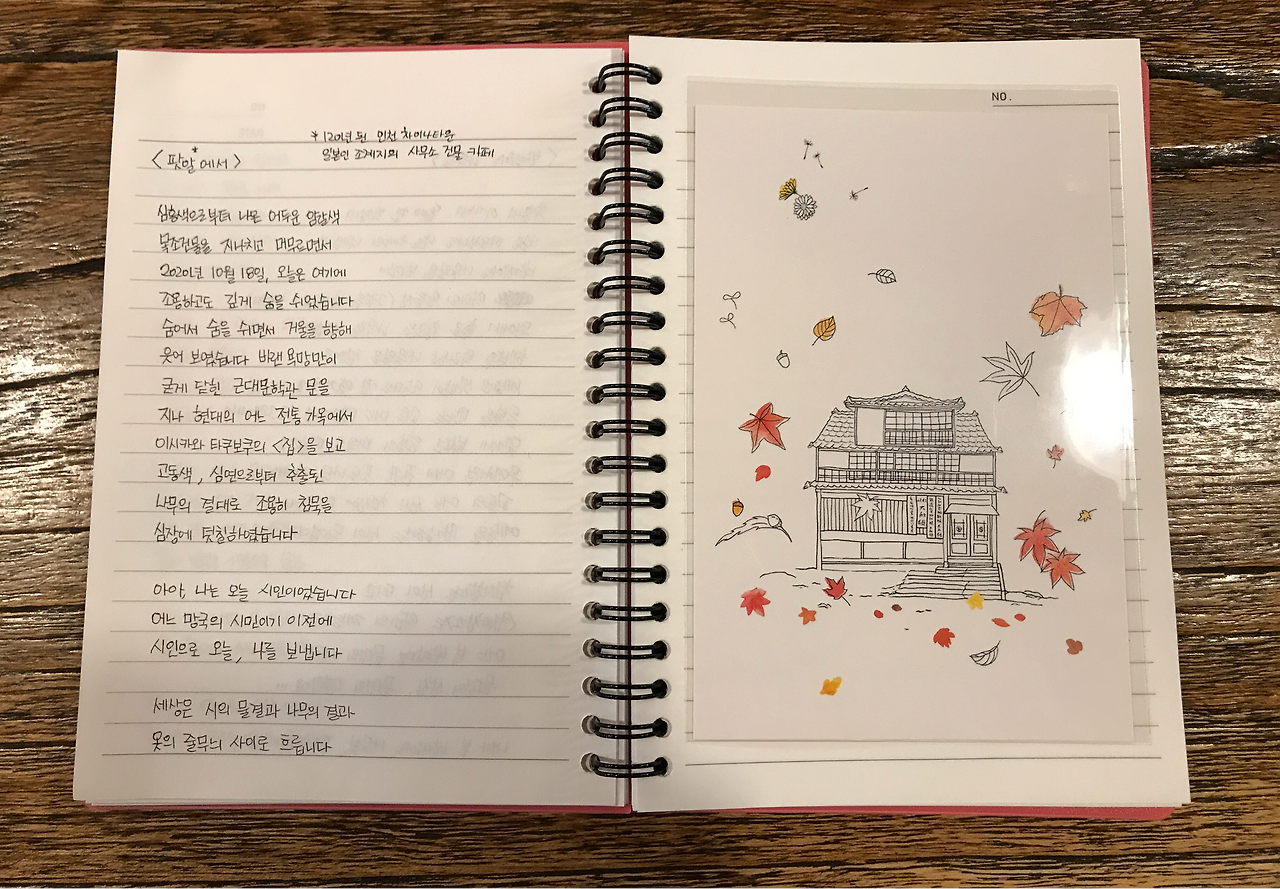 * 120년 된 인천 차이나타운
일본인 조계지의 사무소 건물 카페
<팟알*에서>
심홍색으로부터 나온 어두운 암갈색
목조건물을 지나치고 머무르면서
2020년 10월 18일, 오늘은 여기에
조용하고도 깊게 숨을 쉬었습니다
숨어서 숨을 쉬면서 거울을 향해
웃어 보였습니다 바랜 욕망만이
굳게 닫힌 근대문학관 문을
지나 현대의 어느 전통가옥에서
이시카와 타쿠보쿠의 <집>을 보고
고동색, 심연으로부터 추출된
나무의 결대로 조용히 침묵을
심장에 덧칠하였습니다
아아, 나는 오늘 시민이었습니다
어느 망국의 시민이기 이전에
시인으로 오늘, 나를 보냅니다
세상은 시의 물결과 나무의 결과
옷의 줄무늬 사이로 흐릅니다
NO.